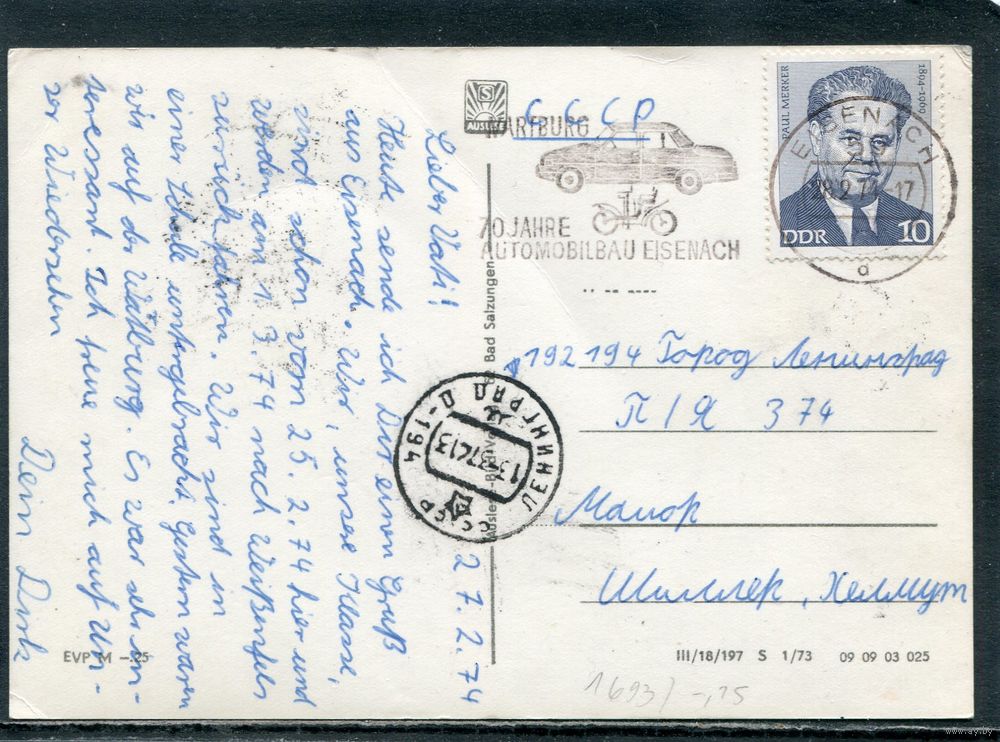 27.2.74
Lieber Vati!
Heute sende ich Dir einen Gruß
aus Eisenach. Wir, unsere Klasse,
sind schon vom 25.2.74 hier und
werden am 1.3.74 nach Weißenfels
zurück fahren. Wir sind in
einer Halle untergebracht. Gestern waren
wir auf der Wartburg. Es war sehr in-
teressant. Ich freue mich auf Un-
ser Wiedersehn
Dein Dirk
EVP M -.25
S
AUSLESE
Bad Salzungen
СССР
WARTBURG
70 JAHRE
AUTOMOBILBAU EISENACH
PAUL MERKER
1894-1969
DDR 10
EISENACH
-17
a
192194 Город Ленинград
П/Я 374
Майор
Шиллер, Хельмут
ЛЕНИНГРАД Д-194
СССР
III/18/197 S 1/73 09 09 03 025
1693/-,15
www.ay.by